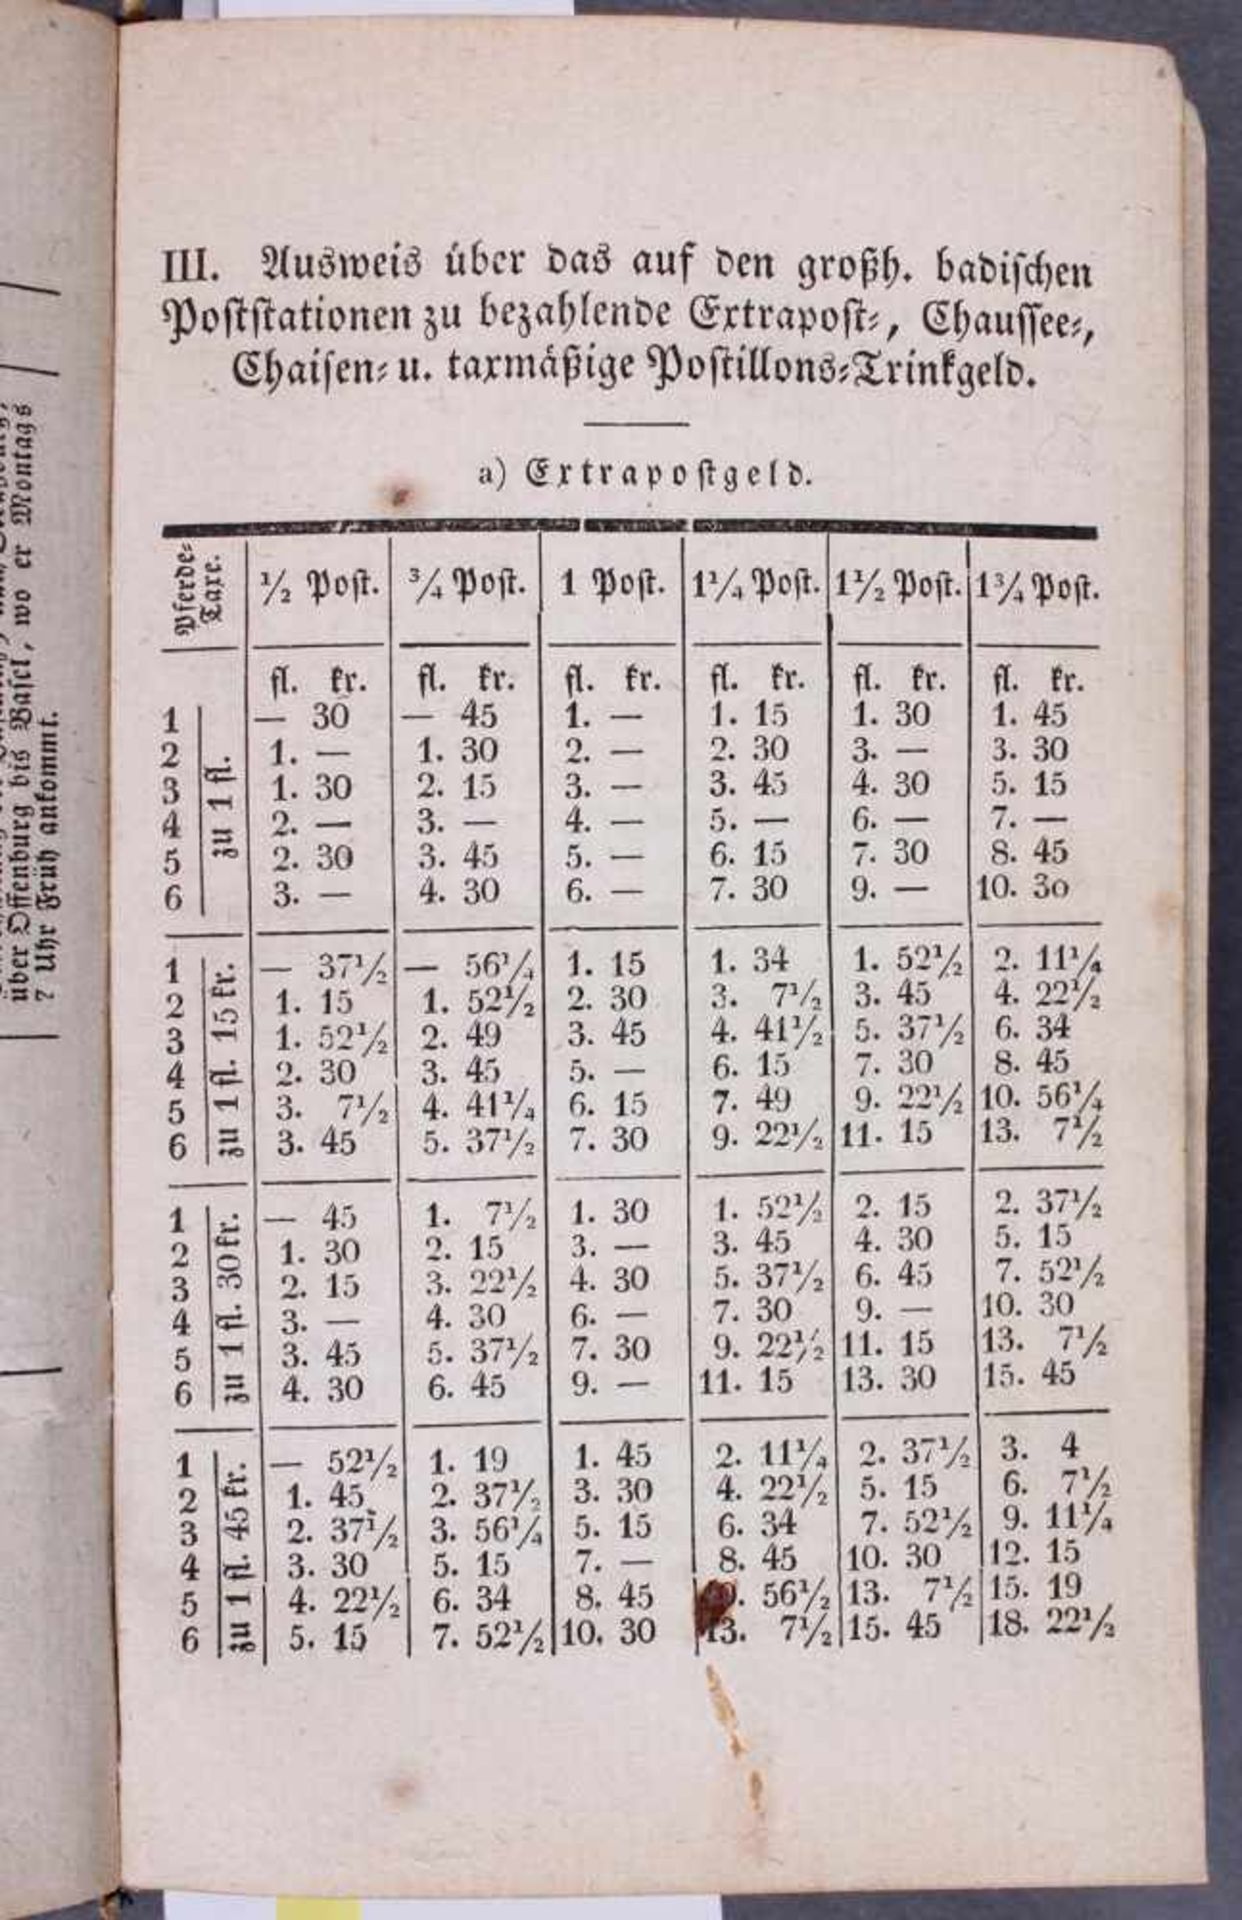 III. Ausweis über das auf den großh. badischen
Poststationen zu bezahlende Extrapost-, Chaussee-,
Chaisen- u. taxmäßige Postillons-Trinkgeld.
a) Extrapostgeld.
Pferde-Taxe. ½ Post. ¾ Post. 1 Post. 1¼ Post. 1½ Post. 1¾ Post.
fl. kr. fl. kr. fl. kr. fl. kr. fl. kr. fl. kr.
zu 1 fl.
1 — 30 — 45 1. — 1. 15 1. 30 1. 45
2 1. — 1. 30 2. — 2. 30 3. — 3. 30
3 1. 30 2. 15 3. — 3. 45 4. 30 5. 15
4 2. — 3. — 4. — 5. — 6. — 7. —
5 2. 30 3. 45 5. — 6. 15 7. 30 8. 45
6 3. — 4. 30 6. — 7. 30 9. — 10. 30
zu 1 fl. 15 kr.
1 — 37½ — 56¼ 1. 15 1. 34 1. 52½ 2. 11¼
2 1. 15 1. 52½ 2. 30 3. 7½ 3. 45 4. 22½
3 1. 52½ 2. 49 3. 45 4. 41½ 5. 37½ 6. 34
4 2. 30 3. 45 5. — 6. 15 7. 30 8. 45
5 3. 7½ 4. 41¼ 6. 15 7. 49 9. 22½ 10. 56¼
6 3. 45 5. 37½ 7. 30 9. 22½ 11. 15 13. 7½
zu 1 fl. 30 kr.
1 — 45 1. 7½ 1. 30 1. 52½ 2. 15 2. 37½
2 1. 30 2. 15 3. — 3. 45 4. 30 5. 15
3 2. 15 3. 22½ 4. 30 5. 37½ 6. 45 7. 52½
4 3. — 4. 30 6. — 7. 30 9. — 10. 30
5 3. 45 5. 37½ 7. 30 9. 22½ 11. 15 13. 7½
6 4. 30 6. 45 9. — 11. 15 13. 30 15. 45
zu 1 fl. 45 kr.
1 — 52½ 1. 19 1. 45 2. 11¼ 2. 37½ 3. 4
2 1. 45 2. 37½ 3. 30 4. 22½ 5. 15 6. 7½
3 2. 37½ 3. 56¼ 5. 15 6. 34 7. 52½ 9. 11¼
4 3. 30 5. 15 7. — 8. 45 10. 30 12. 15
5 4. 22½ 6. 34 8. 45 56½ 13. 7½ 15. 19
6 5. 15 7. 52½ 10. 30 13. 7½ 15. 45 18. 22½
über Offenburg bis Basel, wo er Montags
Uhr Früh ankommt.